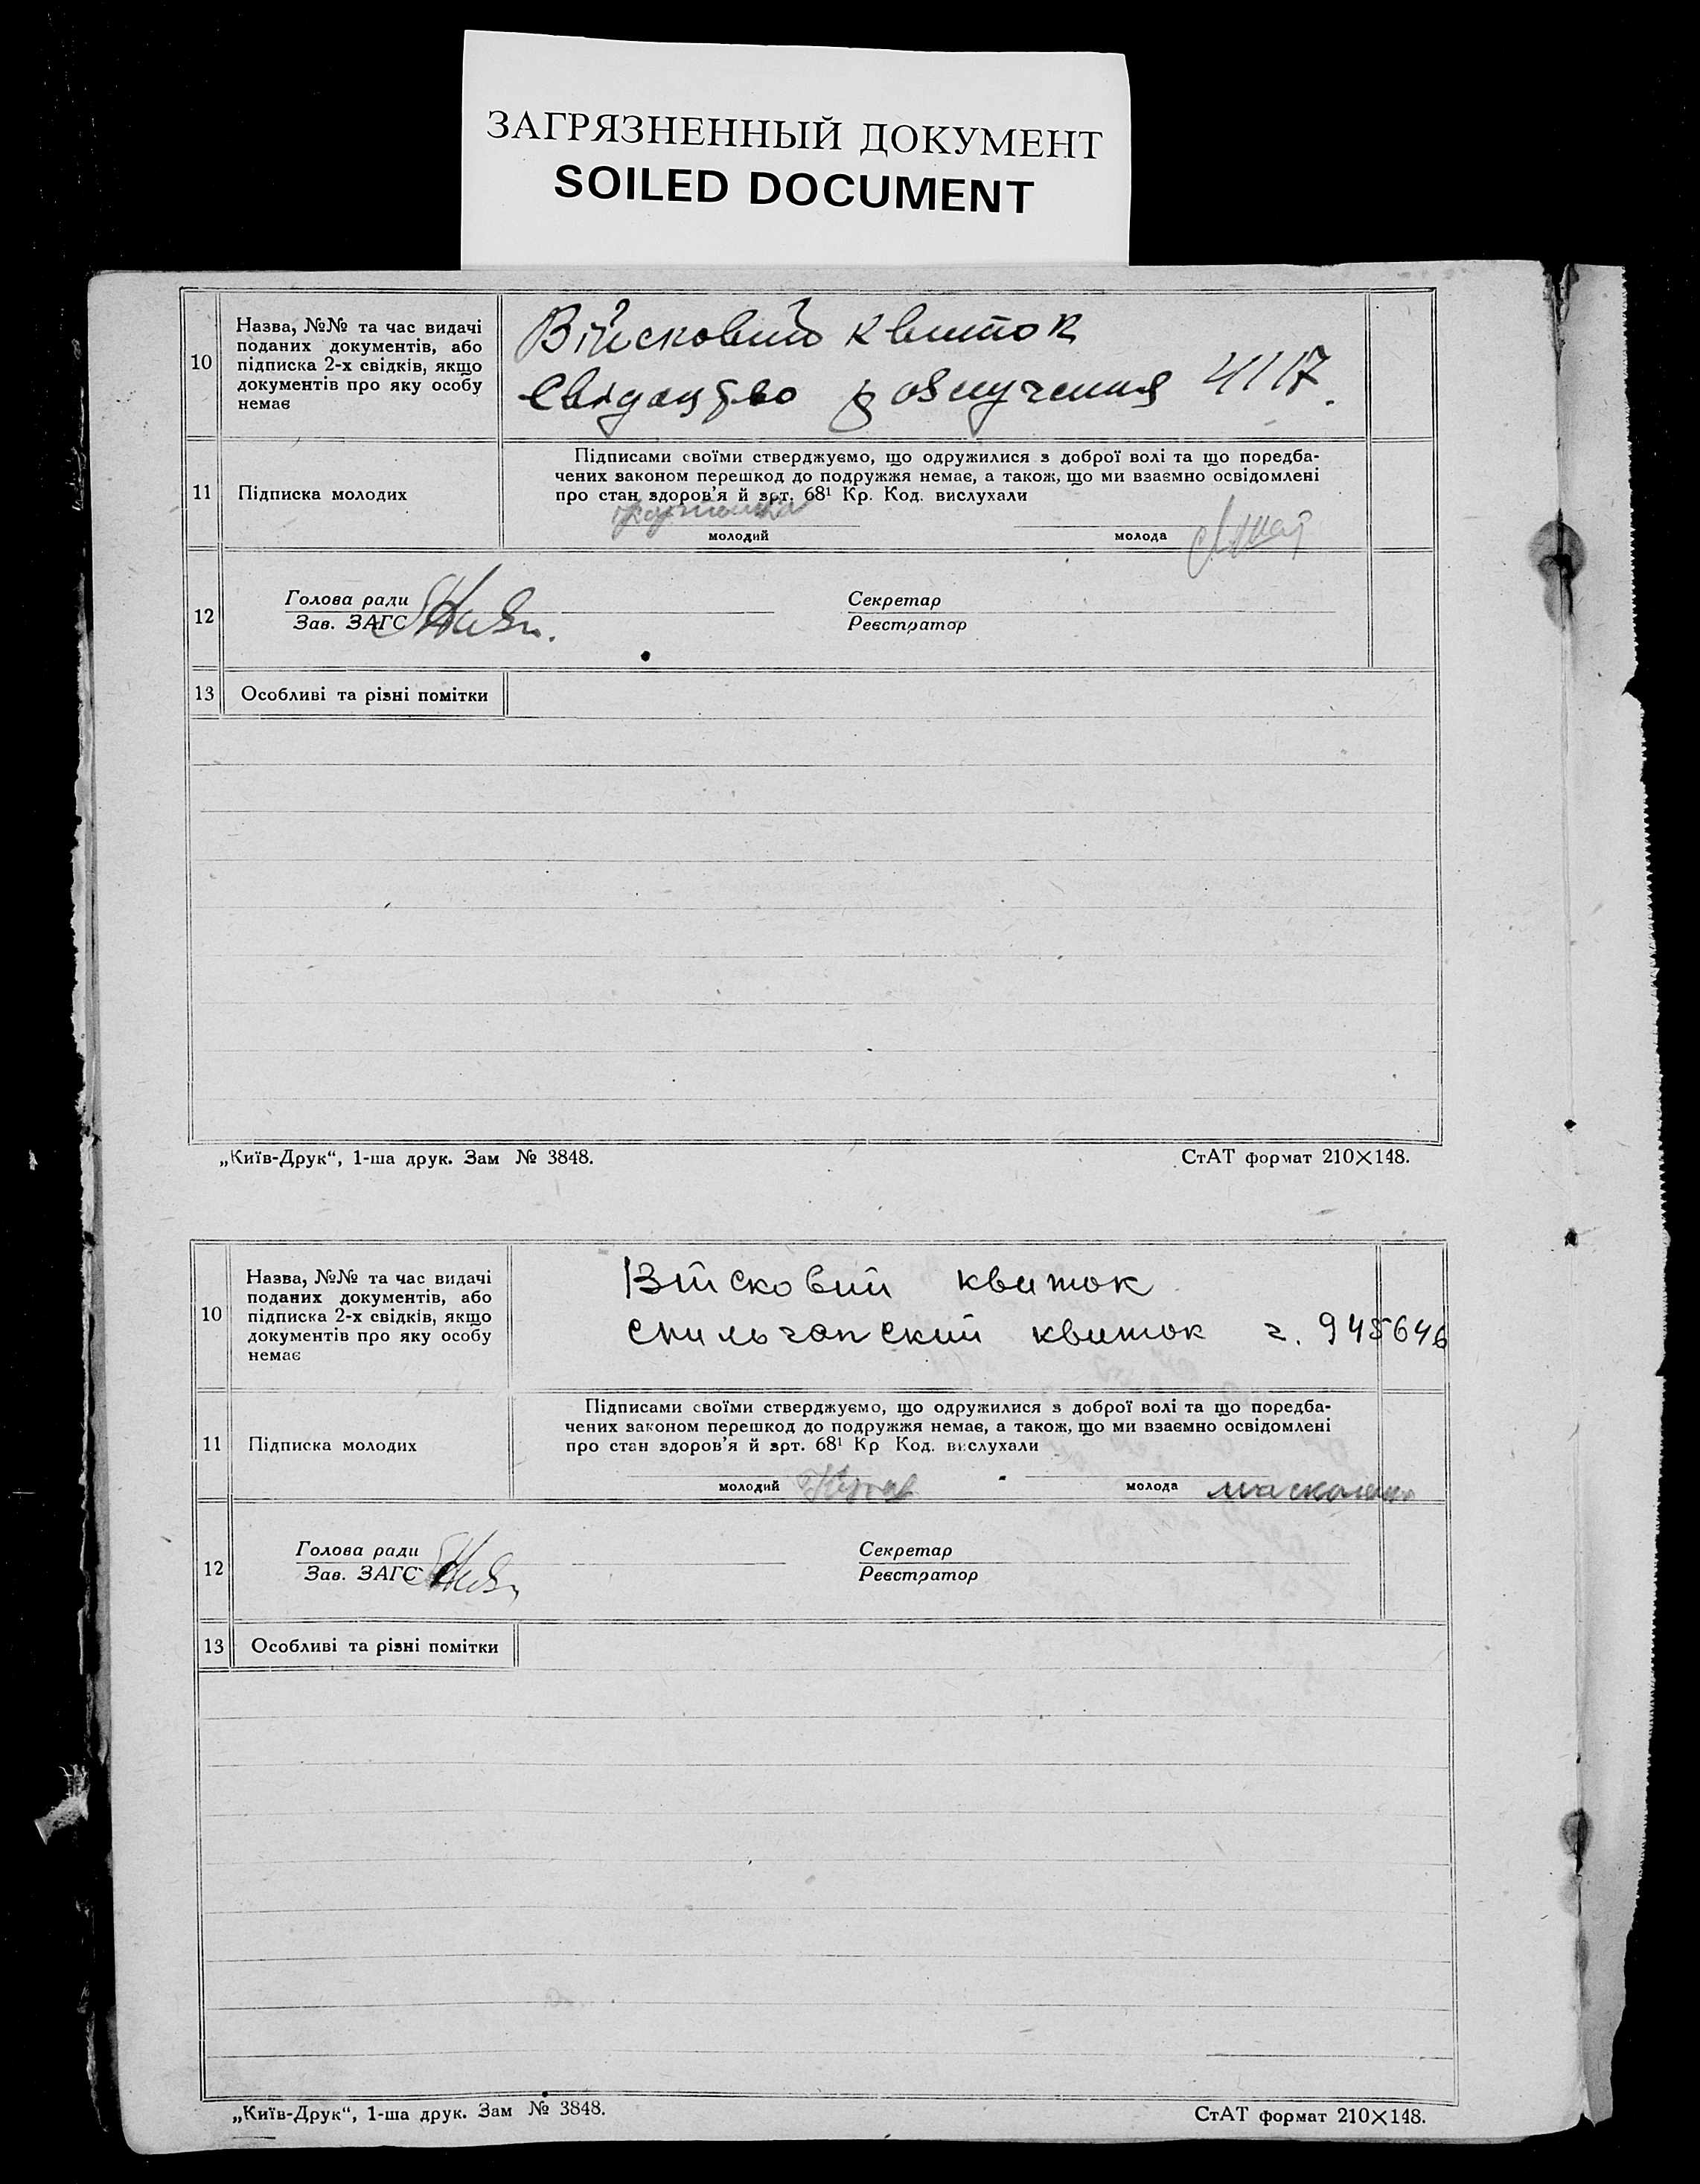 ЗАГРЯЗНЕННЫЙ ДОКУМЕНТ
SOILED DOCUMENT
10
Назва, №№ та час видачі
поданих документів, або
підписка 2-х свідків, якщо
документів про яку особу
немає
Війсковий квиток
Свідацтво 4117.
11
Підписка молодих
Підписами своїми стверджуємо, що одружилися з доброї волі та що поредба-
чених законом перешкод до подружжя немає, а також, що ми взаємно освідомлені
про стан здоров'я й арт. 68¹ Кр. Код. вислухали
молодий
молода
12
Голова ради
Зав. ЗАГС
Секретар
Реєстратор
13
Особливі та різні помітки
„Київ-Друк“, 1-ша друк. Зам № 3848.
СтАТ формат 210×148.
10
Назва, №№ та час видачі
поданих документів, або
підписка 2-х свідків, якщо
документів про яку особу
немає
Війсковий квиток
спильчанский квиток ч. 945646
11
Підписка молодих
Підписами своїми стверджуємо, що одружилися з доброї волі та що поредба-
чених законом перешкод до подружжя немає, а також, що ми взаємно освідомлені
про стан здоров'я й арт. 68¹ Кр Код. вислухали
молодий
молода
12
Голова ради
Зав. ЗАГС
Секретар
Реєстратор
13
Особливі та різні помітки
„Київ-Друк“, 1-ша друк. Зам № 3848.
СтАТ формат 210×148.